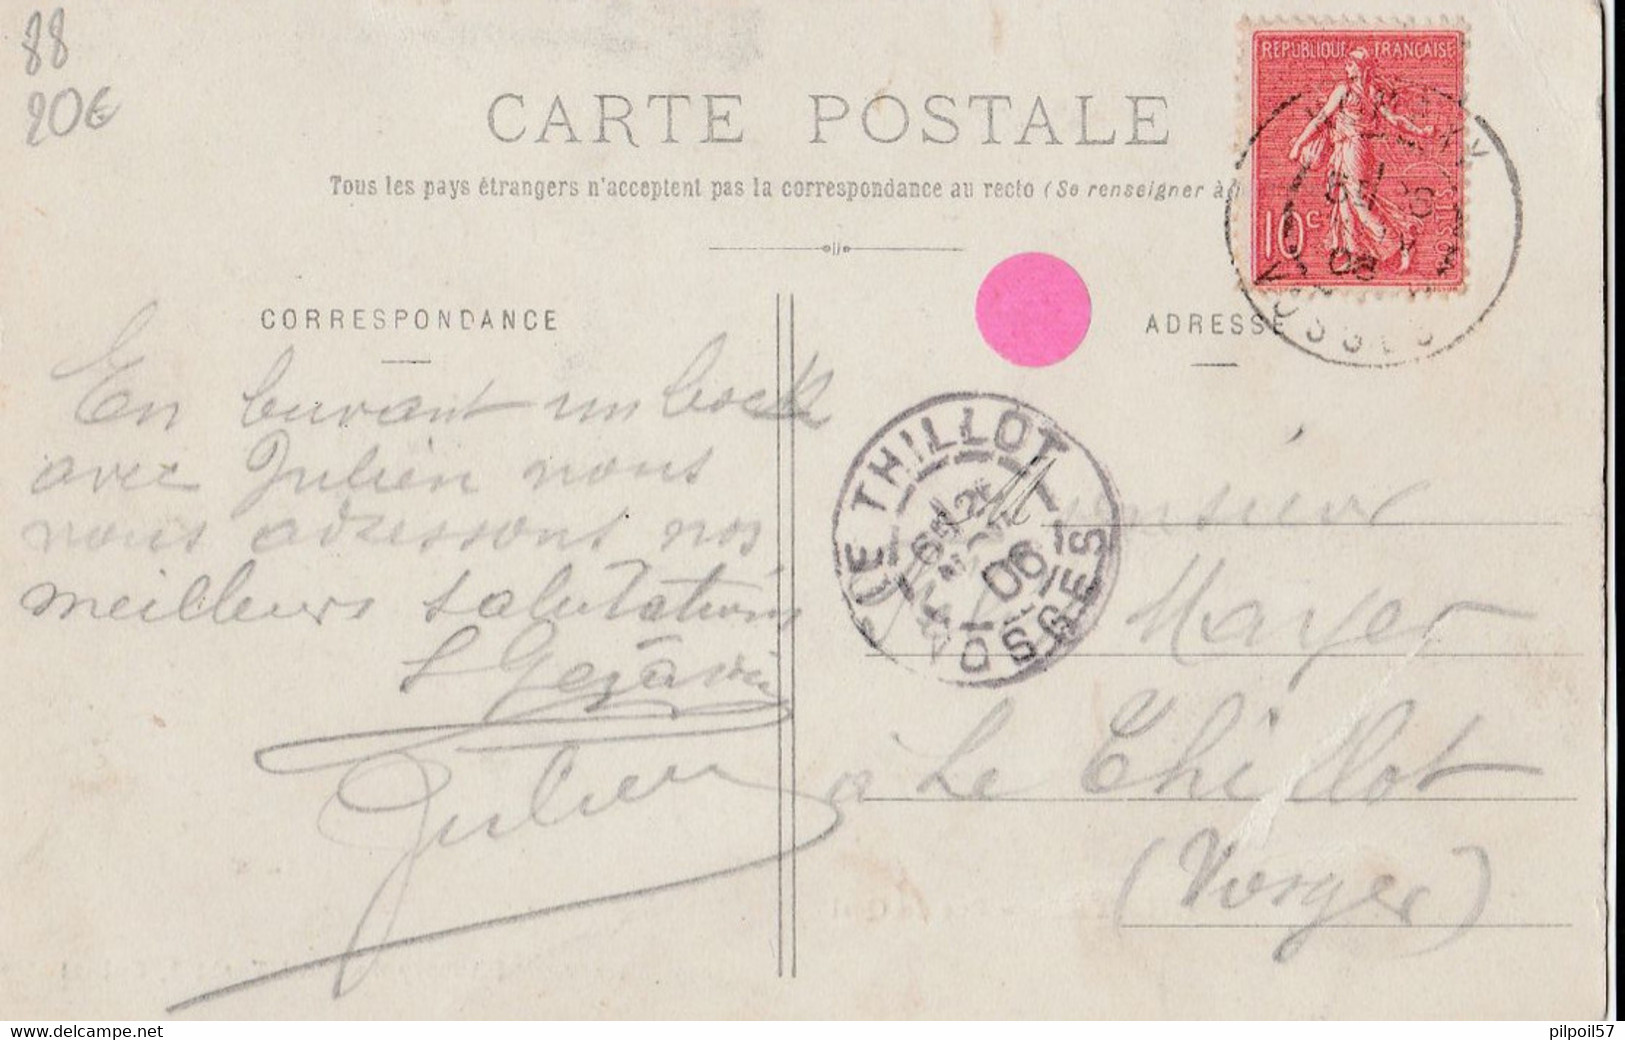 88
20€
CARTE POSTALE
Tous les pays étrangers n'acceptent pas la correspondance au recto (Se renseigner à
REPUBLIQUE FRANÇAISE
10c
POSTES
VOSGES
CORRESPONDANCE
ADRESSE
En buvant un bock
avec Julien nous
nous adressons nos
meilleurs salutations
Julien
LE THILLOT
06
VOSGES
Monsieur
Mayer
à Le Thillot
(Vosges)
www.delcampe.net
pilpoil57